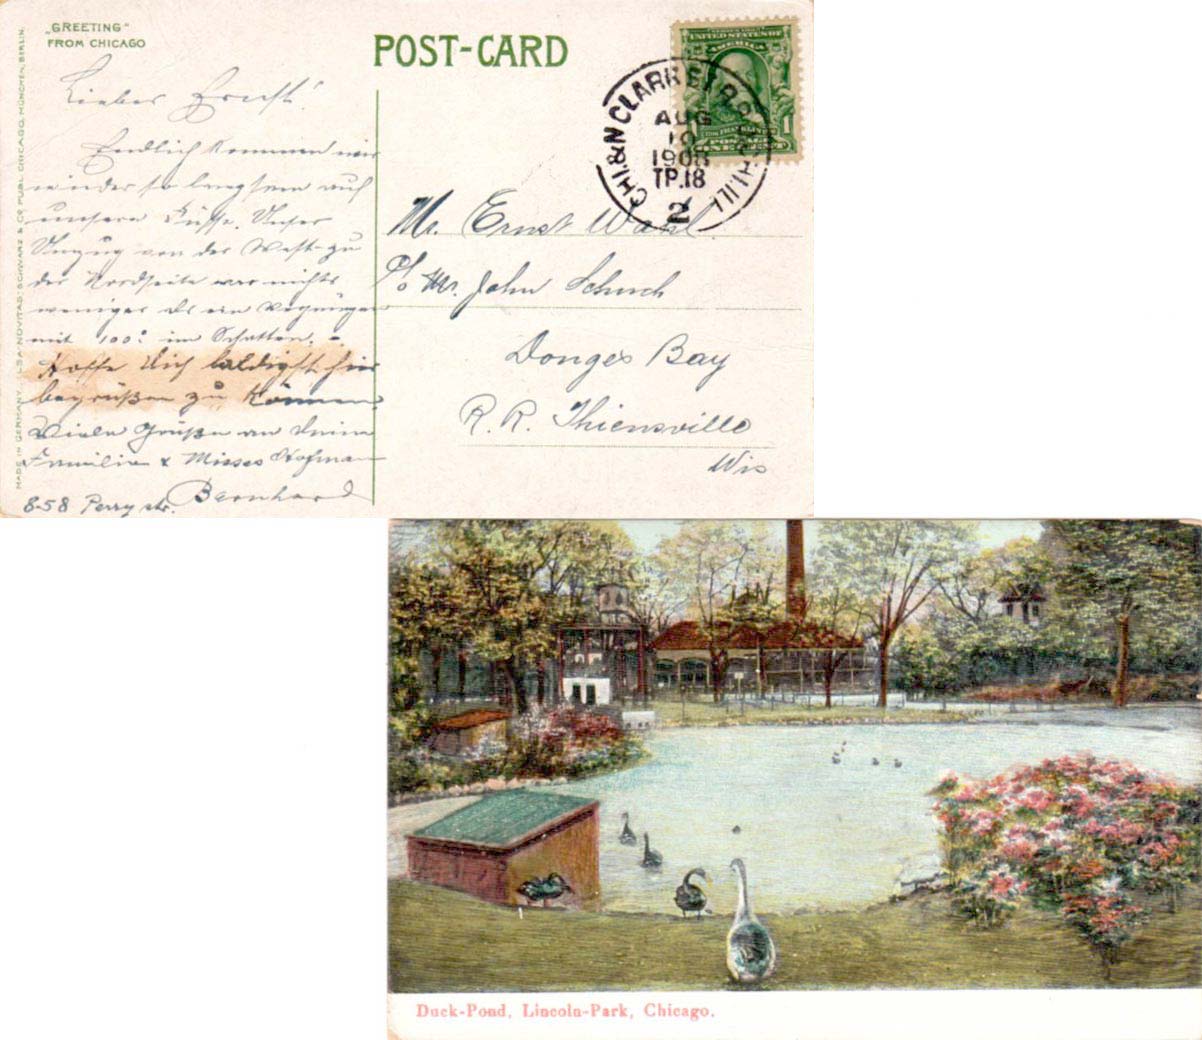 „GREETING"
FROM CHICAGO
POST-CARD
UNITED STATES OF
AMERICA
1
POSTAGE
ONE CENT
CHI. & N CLARK ST R.P.O.
CHI ILL
AUG
10
1908
TP.18
2
MADE IN GERMANY. LSA-NOVITAS: SCHWARZ & CO PUBL CHICAGO, MÜNCHEN, BERLIN.
Lieber Ernst!
Endlich kommen wir
wieder so langsam auf
unsere Füsse. Unser
Umzug von der West- zu
der Nordseite war nichts
weniger als ein Vergnügen
mit 100° im Schatten. -
Hoffe Dich baldigst hier
begrüßen zu können.
Viele Grüße an Deine
Familie & Misses Hofman
Bernhard
858 Perry str.
Mr. Ernst Wahl.
c/o Mr. John Schuch
Donges Bay
R. R. Thiensville
Wis
Duck-Pond, Lincoln-Park, Chicago.